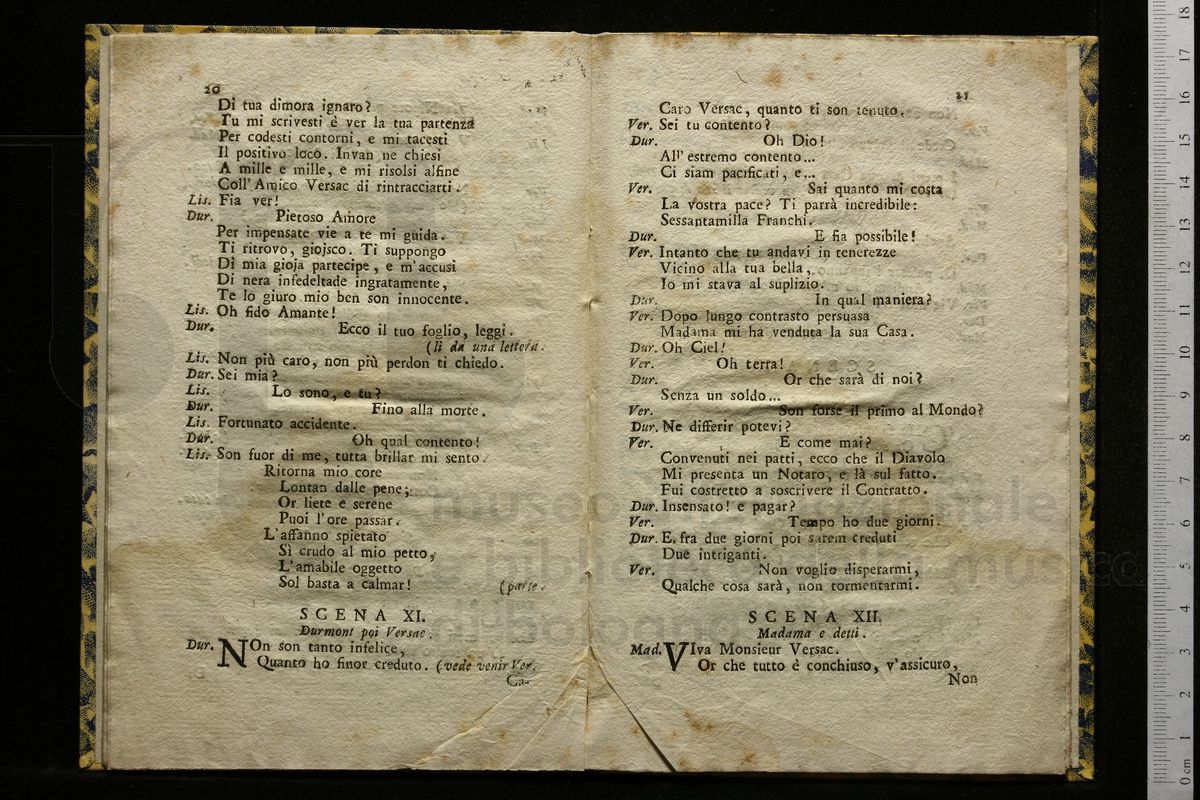 20
Di tua dimora ignaro?
Tu mi scrivesti è ver la tua partenza
Per codesti contorni, e mi tacesti
Il positivo loco. Invan ne chiesi
A mille e mille, e mi risolsi alfine
Coll' Amico Versac di rintracciarti.
Lis. Fia ver!
Dur. Pietoso Amore
Per impensate vie a te mi guida.
Ti ritrovo, giojsco. Ti suppongo
Di mia gioja partecipe, e m'accusi
Di nera infedeltade ingratamente,
Te lo giuro mio ben son innocente.
Lis. Oh fido Amante!
Dur. Ecco il tuo foglio, leggi.
(li da una lettera.
Lis. Non più caro, non più perdon ti chiedo.
Dur. Sei mia?
Lis. Lo sono, e tu?
Dur. Fino alla morte.
Lis. Fortunato accidente.
Dur. Oh qual contento!
Lis. Son fuor di me, tutta brillar mi sento.
Ritorna mio core
Lontan dalle pene;
Or liete e serene
Puoi l'ore passar.
L'affanno spietato
Sì crudo al mio petto,
L'amabile oggetto
Sol basta a calmar! (parte.
SCENA XI.
Durmont poi Versac.
Dur. NOn son tanto infelice,
Quanto ho finor creduto. (vede venir Ver.
Ca-
21
Caro Versac, quanto ti son tenuto.
Ver. Sei tu contento?
Dur. Oh Dio!
All' estremo contento...
Ci siam pacificati, e...
Ver. Sai quanto mi costa
La vostra pace? Ti parrà incredibile:
Sessantamilla Franchi.
Dur. E fia possibile!
Ver. Intanto che tu andavi in tenerezze
Vicino alla tua bella,
Io mi stava al suplizio.
Dur. In qual maniera?
Ver. Dopo lungo contrasto persuasa
Madama mi ha venduta la sua Casa.
Dur. Oh Ciel!
Ver. Oh terra!
Dur. Or che sarà di noi?
Senza un soldo...
Ver. Son forse il primo al Mondo?
Dur. Ne differir potevi?
Ver. E come mai?
Convenuti nei patti, ecco che il Diavolo
Mi presenta un Notaro, e là sul fatto.
Fui costretto a soscrivere il Contratto.
Dur. Insensato! e pagar?
Ver. Tempo ho due giorni.
Dur. E, fra due giorni poi sarem creduti
Due intriganti.
Ver. Non voglio disperarmi,
Qualche cosa sarà, non tormentarmi.
SCENA XII.
Madama e detti.
Mad. VIva Monsieur Versac.
Or che tutto è conchiuso, v'assicuro,
Non
0 cm 1 2 3 4 5 6 7 8 9 10 11 12 13 14 15 16 17 18